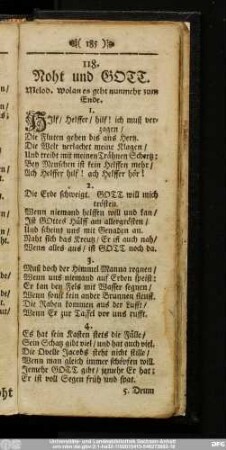 ( 185 )
118.
Noht und GOTT.
Melod. Wolan es geht nunmehr zum
Ende.
1.
Hilf / Helffer / hilf! ich muß ver-
zagen /
Die Fluten gehen bis ans Herz.
Die Welt verlachet meine Klagen /
Und treibt mit meinen Trähnen Schertz:
Bey Menschen ist kein Helffen mehr;
Ach Helffer hilf! ach Helffer hör!
2.
Die Erde schweigt. GOTT will mich
trösten.
Wenn niemand helffen will und kan /
Ist GOttes Hülff am allergrösten /
Und scheint uns mit Genaden an.
Naht sich das Kreutz / Er ist auch nah /
Wenn alles aus / ist GOTT noch da.
3.
Muß doch der Himmel Manna regnen /
Wenn uns niemand auf Erden speist:
Er kan den Fels mit Wasser segnen /
Wenn sonst kein ander Brunnen fleust.
Die Raben kommen aus der Lufft /
Wenn Er zur Taffel vor uns rufft.
4.
Es hat sein Kasten stets die Fülle /
Sein Schatz gibt viel / und hat auch viel.
Die Qvelle Jacobs steht nicht stille /
Wenn man gleich immer schöpffen will.
Jemehr GOTT gibt / jemehr Er hat;
Er ist voll Segen früh und spat.
5. Drum